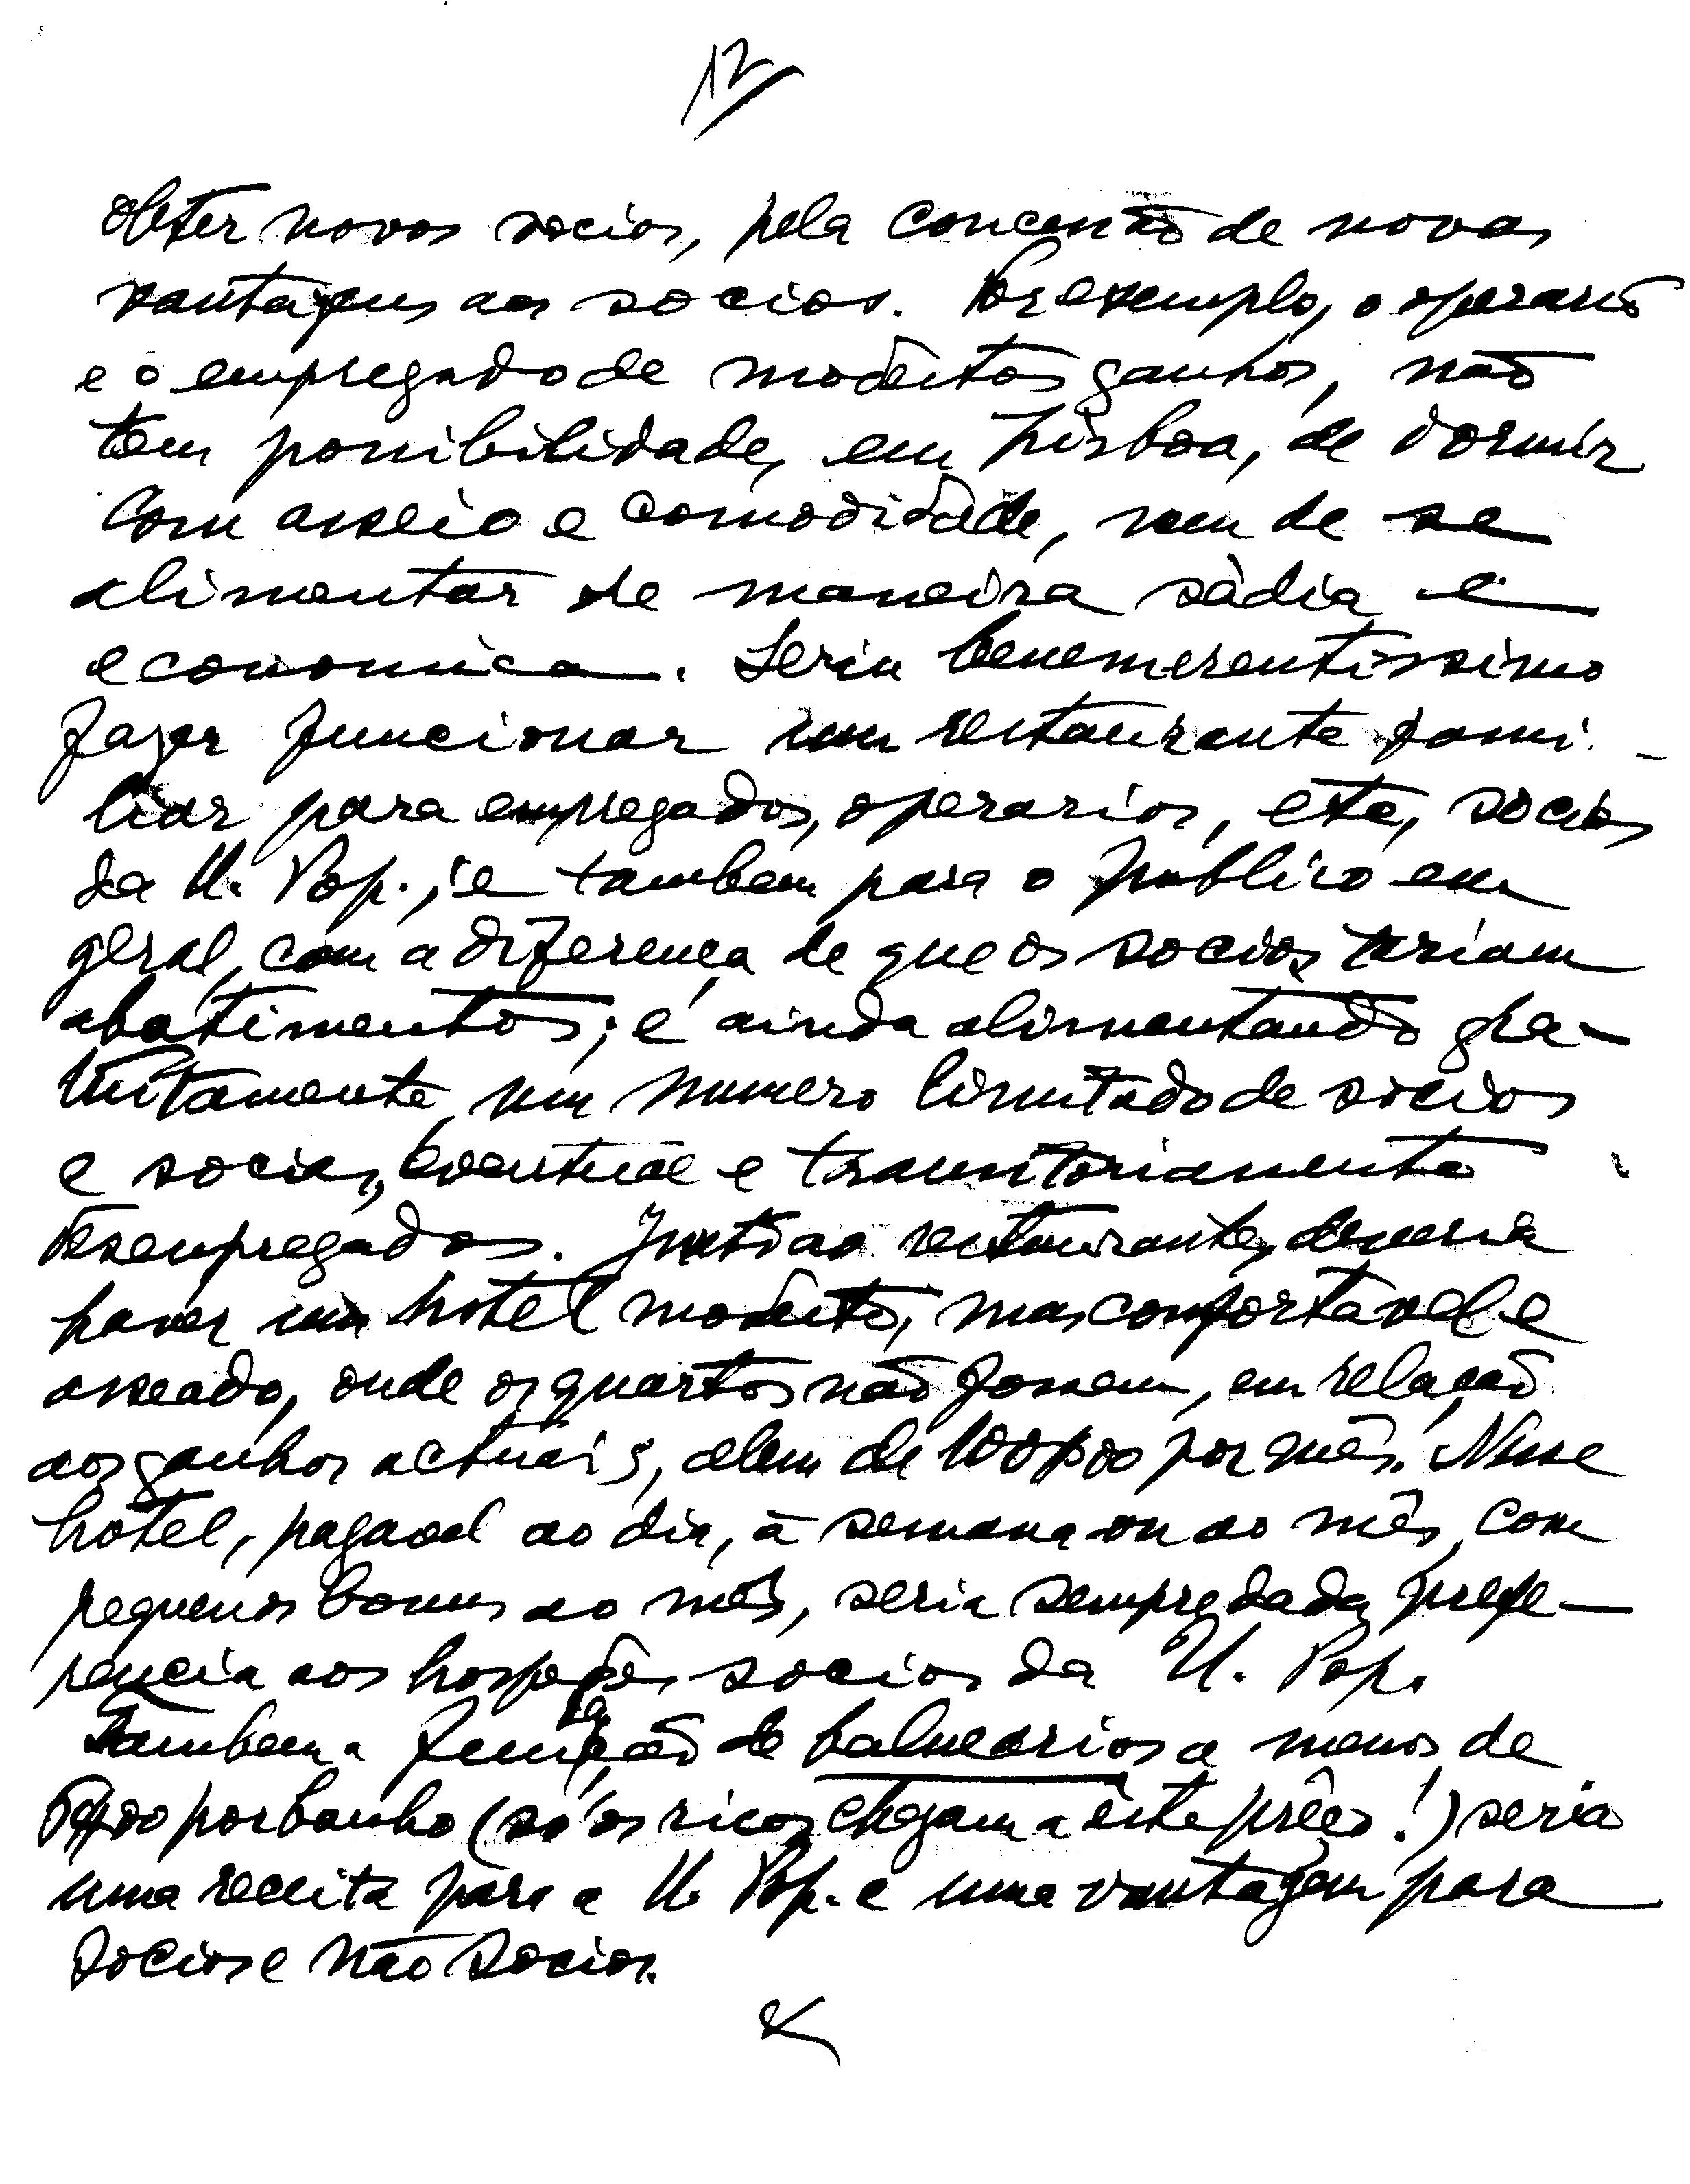 12
obter novos socios, pela concessão de novas
vantagens aos socios. Por exemplo, o operario
e o empregado de modestos ganhos, não
tem possibilidade, em Lisboa, de dormir
com asseio e comodidade, nem de se
alimentar de maneira sàdia e
economica. Seria benemerentissimo
fazer funcionar um restaurante fami-
liar para empregados, operarios, etc, socios
da U. Pop.; e tambem para o publico em
geral, com a diferença de que os socios teriam
abatimentos; e ainda alimentando gra-
tuitamente, um numero limitado de socios
e socias, eventual e transitoriamente
desempregados. Junto ao restaurante, deveria
haver um hotel modesto, mas confortavel e
asseado, onde os quartos não fossem, em relação
aos ganhos actuais, alem de 100$00 por mês. Nesse
hotel, pagavel ao dia, à semana ou ao mês, com
pequenos bonus ao mês, seria sempre dada prefe-
rencia aos hospedes socios da U. Pop.
Tambem a fundação de balnearios a menos de
por banho (só os ricos chegam a êste prêço!) seria
uma receita para a U. Pop. e uma vantagem para
socios e não socios.